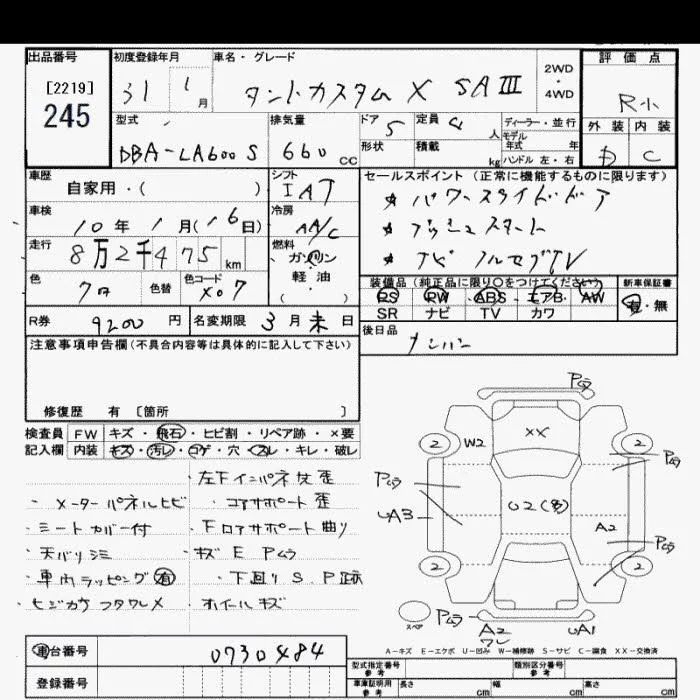 出品番号
[2219]
245
初度登録年月
31 1月
車名・グレード
タントカスタム X SAⅢ
2WD
・
4WD
評価点
R小
外装 内装
D C
型式
DBA-LA600S
排気量
660 cc
ドア
5
定員
4人
形状
積載
kg
ディーラー・並行
モデル
年式 年
ハンドル 左・右
車歴
自家用・( )
シフト
IAT
セールスポイント(正常に機能するものに限ります)
★ パワースライドドア
★ プッシュスタート
★ ナビ フルセグTV
車検
10年 1月(16日)
冷房
AA/C
走行
8万2千475km
燃料
ガソリン
軽油
( )
色
クロ
色替
色コード
X07
装備品(純正品に限り○をつけてください)
PS RW ABS エアB AW
SR ナビ TV カワ
新車保証書
有・無
R券
9200円
名変期限 3月末日
後日品
ナンバー
注意事項申告欄(不具合内容等は具体的に記入して下さい)
修復歴 有 [箇所 ]
検査員
記入欄
FW キズ・飛石・ヒビ割・リペア跡・×要
内装 キズ・汚レ・コゲ・穴・スレ・キレ・破レ
・左下インパネ枝歪
・メーターパネルヒビ ・コアサポート歪
・シートカバー付 ・下ロアサポート曲り
・天バリシミ ・キズ E Pムラ
・車内ラッピング有 ・下回り S.P跡
・ヒジカケフタワレ ・ホイールキズ
Pムラ
2 W2 XX 2
Pムラ
Pムラ
UA3
U2(多)
A2
Pムラ
2 2
スペア
Pムラ
A2
ワレ
UA1
A-キズ E-エクボ U-凹み W-補修跡 S-サビ C-腐食 XX-交換済
車台番号
0730484
登録番号
型式指定番号
参考
類別区分番号
参考
車庫証明用
参考
長さ cm
幅 cm
高さ cm